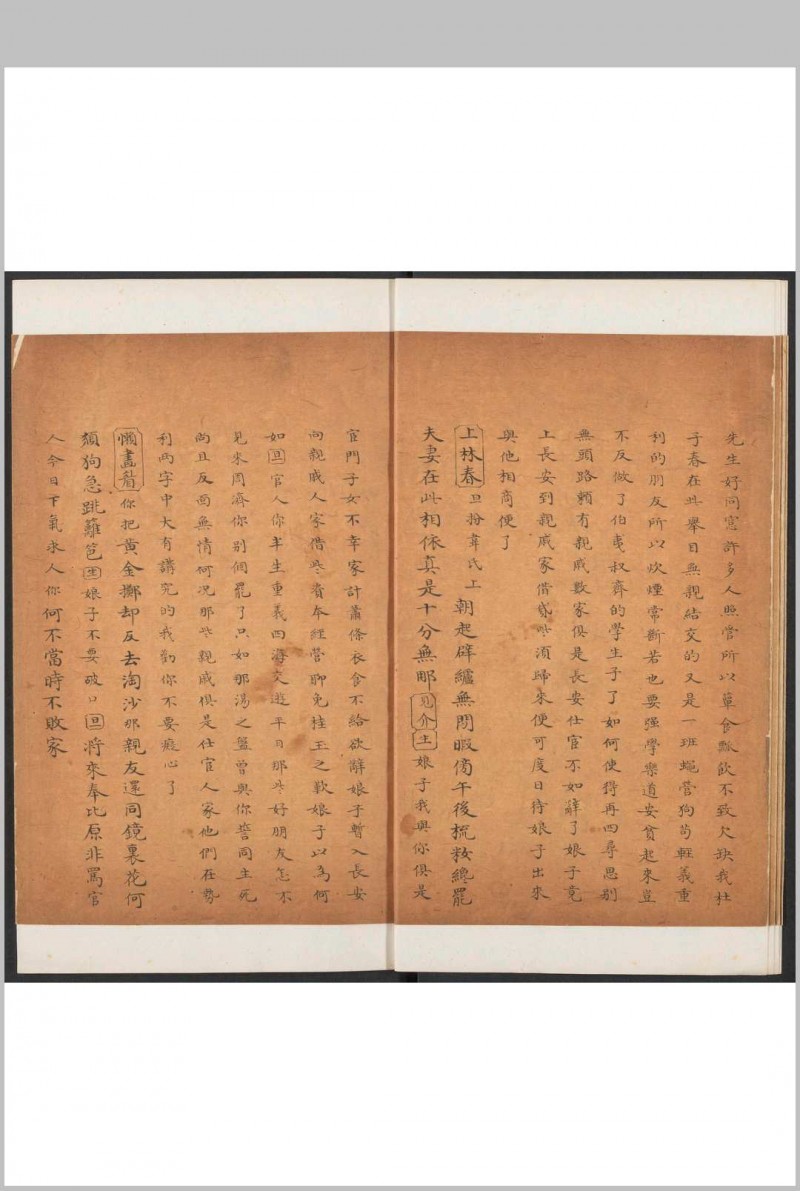 先生好同窓許多人照管所以簞食瓢飲不致欠缺我杜
子春在此舉目無親結交的又是一班蠅營狗苟輕義重
利的朋友所以炊煙常斷若也要强學樂道安貧起來豈
不反做了伯夷叔齊的學生子了如何使得再四尋思別
無頭路頼有親戚數家俱是長安仕宦不如辭了娘子竟
上長安到親戚家借貸些須歸來便可度日待娘子出來
與他相商便了
上林春旦扮韋氏上朝起辟纑無閒暇傋午後梳粧纔罷
夫妻在此相依真是十分無那見介生娘子我與你俱是
宦門子女不幸家計蕭條衣食不給欲辭娘子暫入長安
向親戚人家借些資本經營聊免桂玉之歎娘子以為何
如旦官人你半生重義四海交遊平日那些好朋友怎不
見來周濟你別個罷了只如那湯之盤曾與你誓同生死
尚且反面無情何况那些親戚俱是仕宦人家他們在勢
利兩字中大有講究的我勸你不要癡心了
懶畫眉你把黄金擲却反去淘沙那親友還同鏡裏花何
頳狗急跳籬笆生娘子不要破口旦將來奉比原非罵官
人今日下氣求人你何不當時不敗家